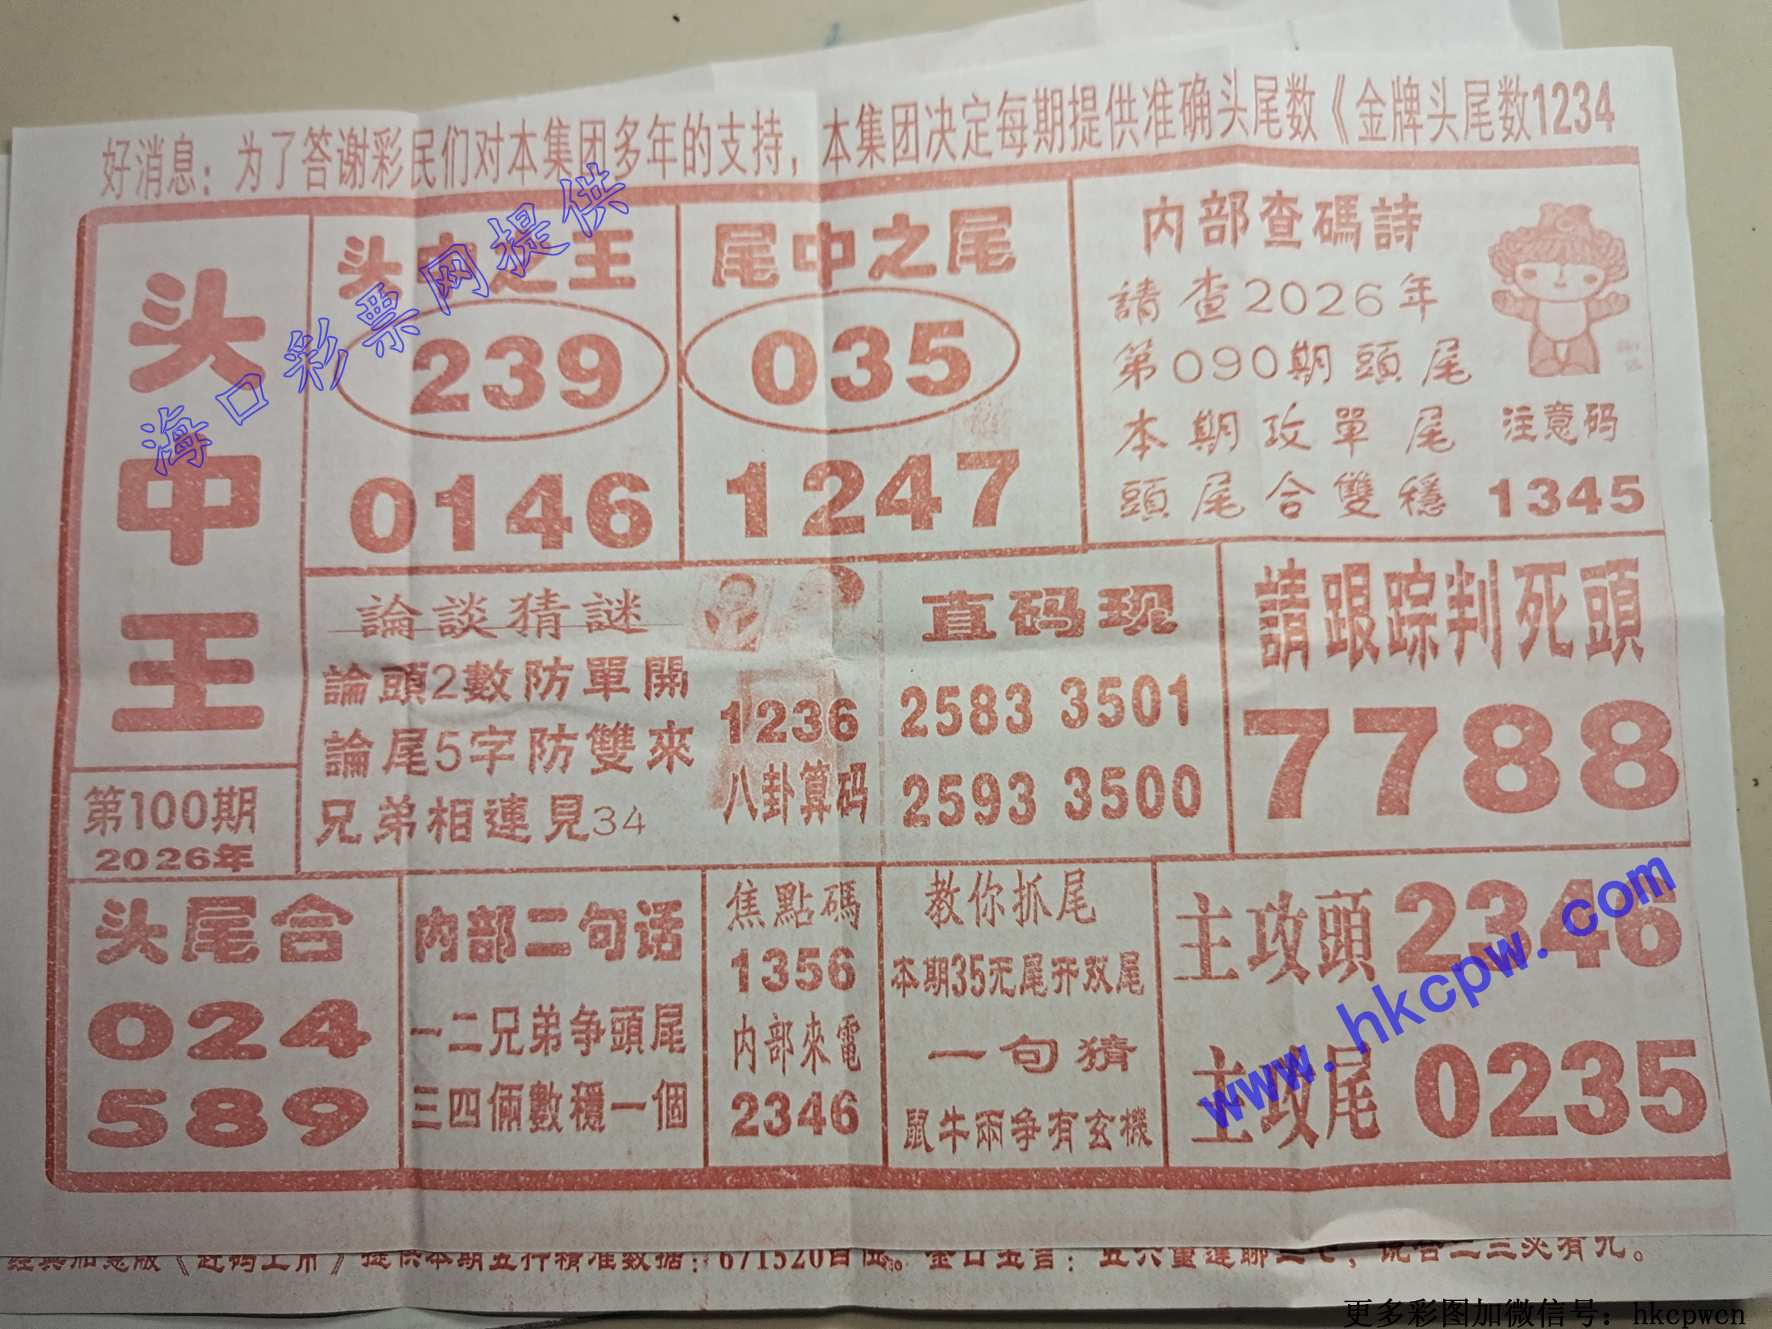 好消息：为了答谢彩民们对本集团多年的支持，本集团决定每期提供准确头尾数《金牌头尾数1234
头中王
第100期
2026年
头中之王
239
0146
尾中之尾
035
1247
内部查碼詩
請查2026年
第090期頭尾
本期攻單尾
頭尾合雙穩
注意码
1345
論談猜謎
論頭2數防單開
論尾5字防雙來
兄弟相連見34
1236
八卦算码
直码现
2583 3501
2593 3500
請跟踪判死頭
7788
头尾合
024
589
内部二句话
一二兄弟争頭尾
三四倆數穩一個
焦點碼
1356
内部來電
2346
教你抓尾
本期35无尾开双尾
一句猜
鼠牛兩争有玄機
主攻頭2346
主攻尾0235
提供本期五行精准数据：671520百位。金口玉言：五六重逢聯
海口彩票网提供
www.hkcpw.com
更多彩图加微信号：hkcpwcn